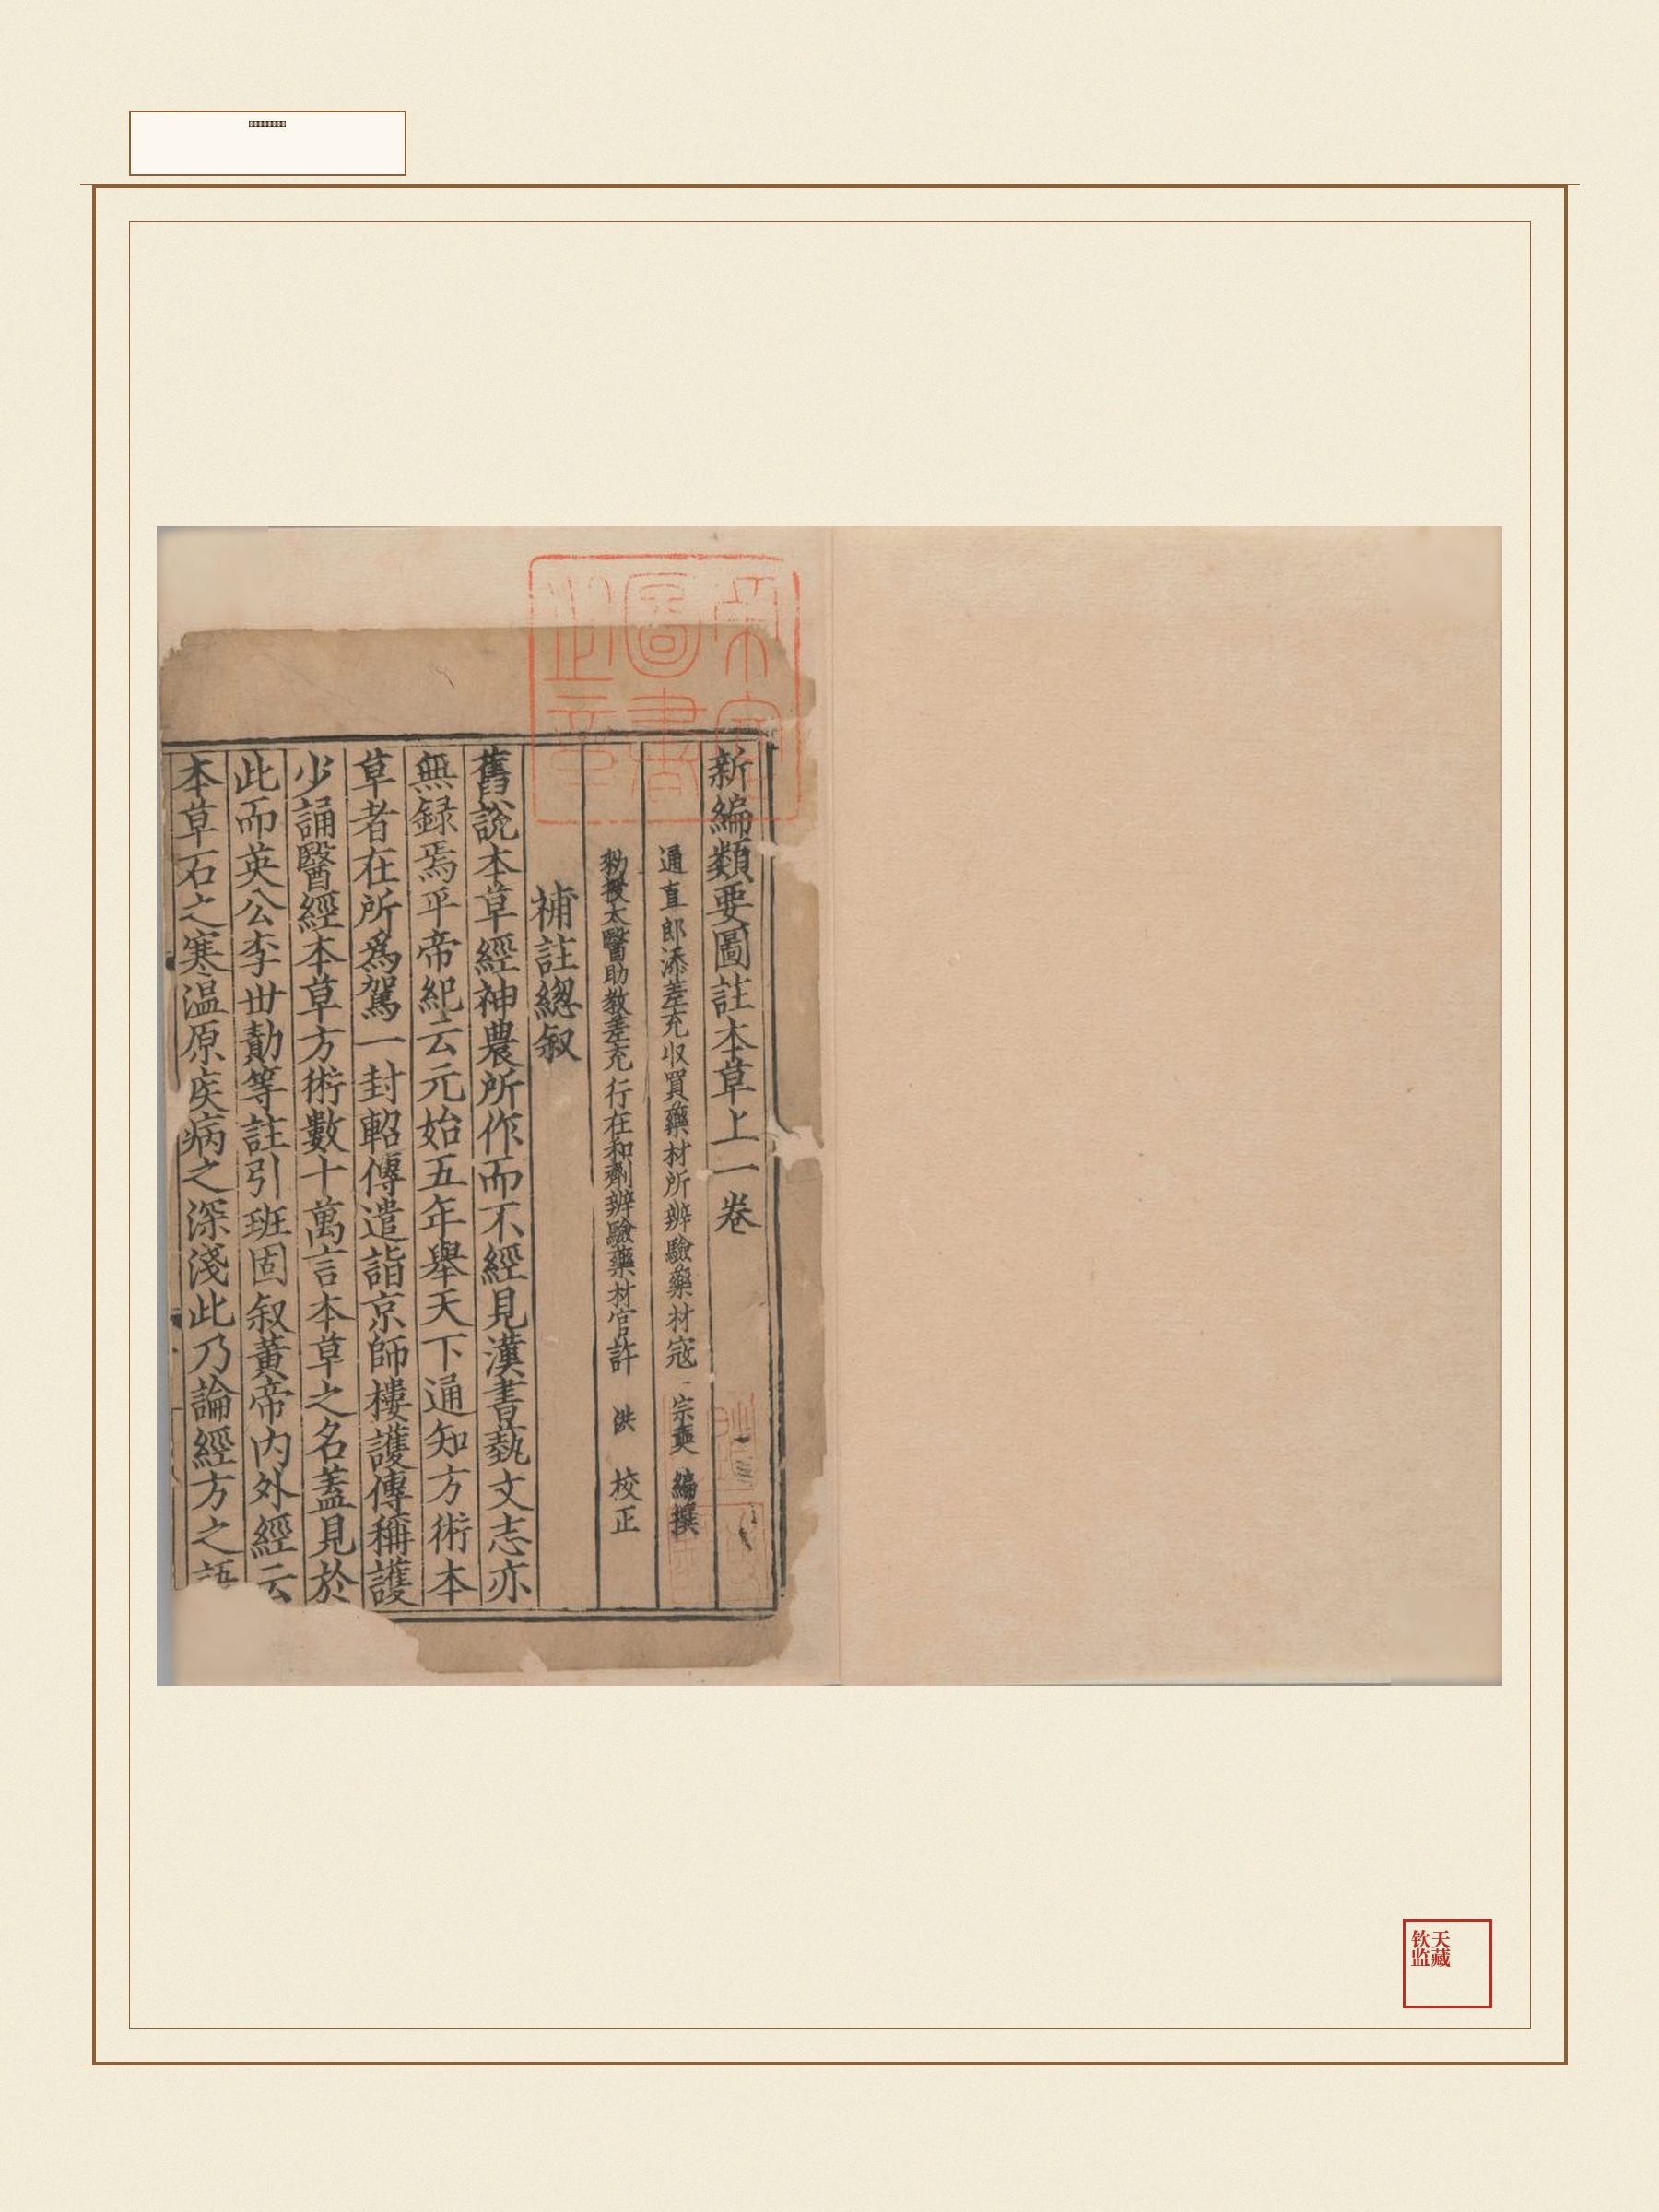 新編類要圖註本草上一卷
通直郎添差充收買藥材所辨驗藥材寇 宗奭 編撰
勑授太醫助教差充行在和劑辨驗藥材官許 洪 校正
補註總叙
舊說本草經神農所作而不經見漢書藝文志亦
無録焉平帝紀云元始五年舉天下通知方術本
草者在所爲駕一封軺傳遣詣京師樓護傳稱護
少誦醫經本草方術數十萬言本草之名蓋見於
此而英公李世勣等註引班固叙黃帝内外經云
本草石之寒温原疾病之深淺此乃論經方之語
帝室圖書之章
钦天监藏